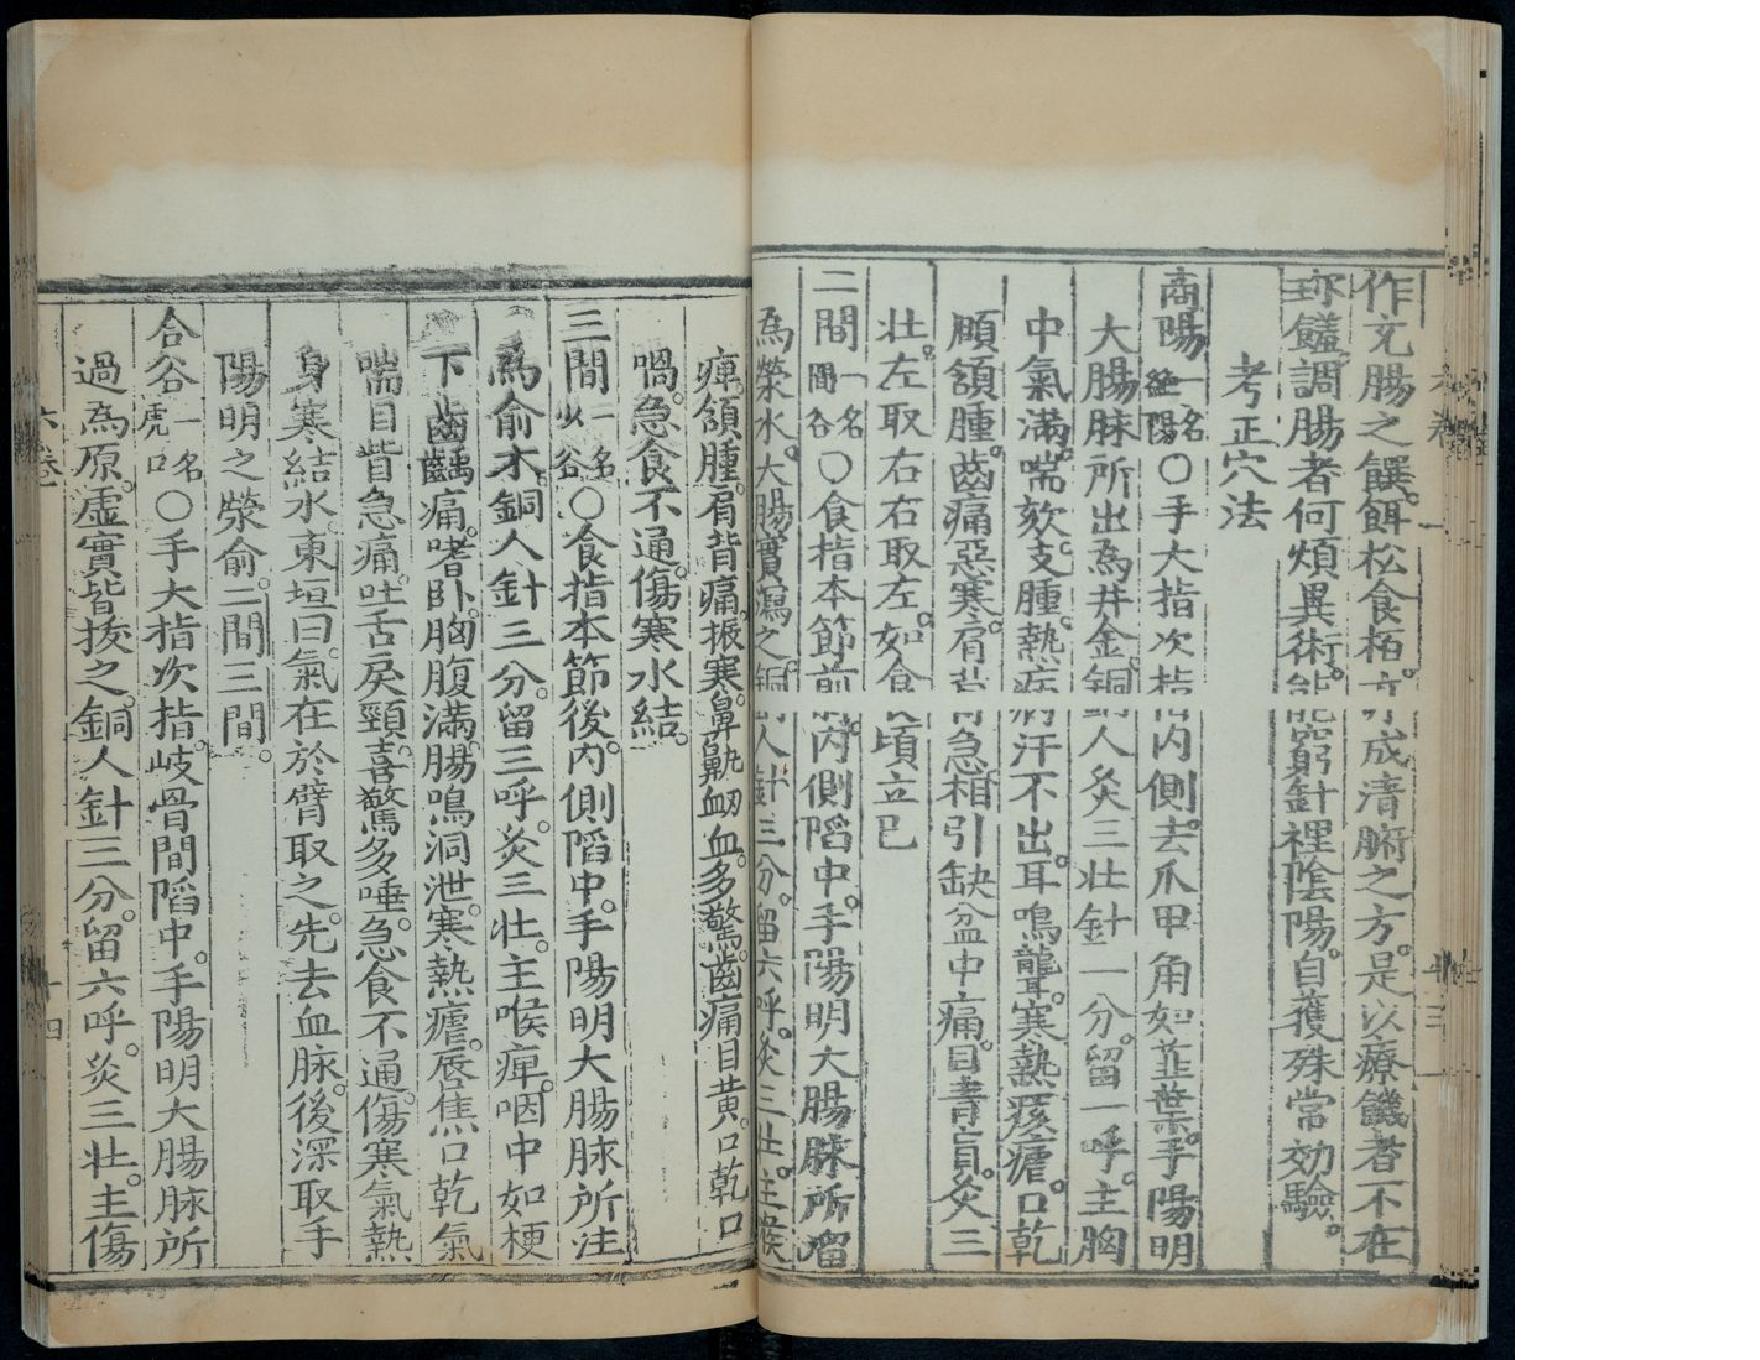 作充腸之饌。餌松食栢。亦成清臓之方。是以療饑者不在
珎饈。調腸者何煩異術。能窮針裡陰陽。自獲殊常効驗。
考正穴法
商陽一名絶陽○手大指次指內側。去爪甲角如韮葉。手陽明
大腸脉所出為井金。銅人灸三壮針一分。留一呼。主胸
中氣滿。喘欬支腫。熱病汗不出。耳鳴聾。寒熱痎瘧。口乾
頥頷腫。齒痛惡寒。肩背急相引缺盆中痛。目青盲。灸三
壮。左取右右取左。如食頃立已
二間一名間谷○食指本節前內側陷中。手陽明大腸脉所溜
為滎水。大腸實瀉之。銅人針三分。留六呼。灸三壮。主喉
痺。頷腫。肩背痛。振寒。鼻鼽衂血。多驚。齒痛目黃。口乾口
喎。急食不通。傷寒水結。
三間一名少谷○食指本節後。內側陷中。手陽明大腸脉所注
為俞木。銅人針三分。留三呼。灸三壮。主喉痺。咽中如梗
下齒齲痛。嗜卧。胸腹滿。腸鳴洞泄。寒熱瘧。唇焦口乾氣
喘目眥急痛。吐舌戾頸。喜驚多唾。急食不通。傷寒氣熱
身寒結水。東垣曰。氣在於臂取之。先去血脉。後深取手
陽明之滎俞。二間三間。
合谷一名虎口○手大指次指。岐骨間陷中。手陽明大腸脉所
過為原。虛實皆拔之。銅人針三分。留六呼。灸三壮。主傷
六卷
十四